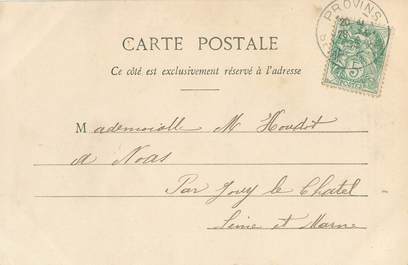 PROVINS
CARTE POSTALE
Ce côté est exclusivement réservé à l'adresse
Mademoiselle M Houdot
a Noas
Par Jouy le Chatel
Seine et Marne